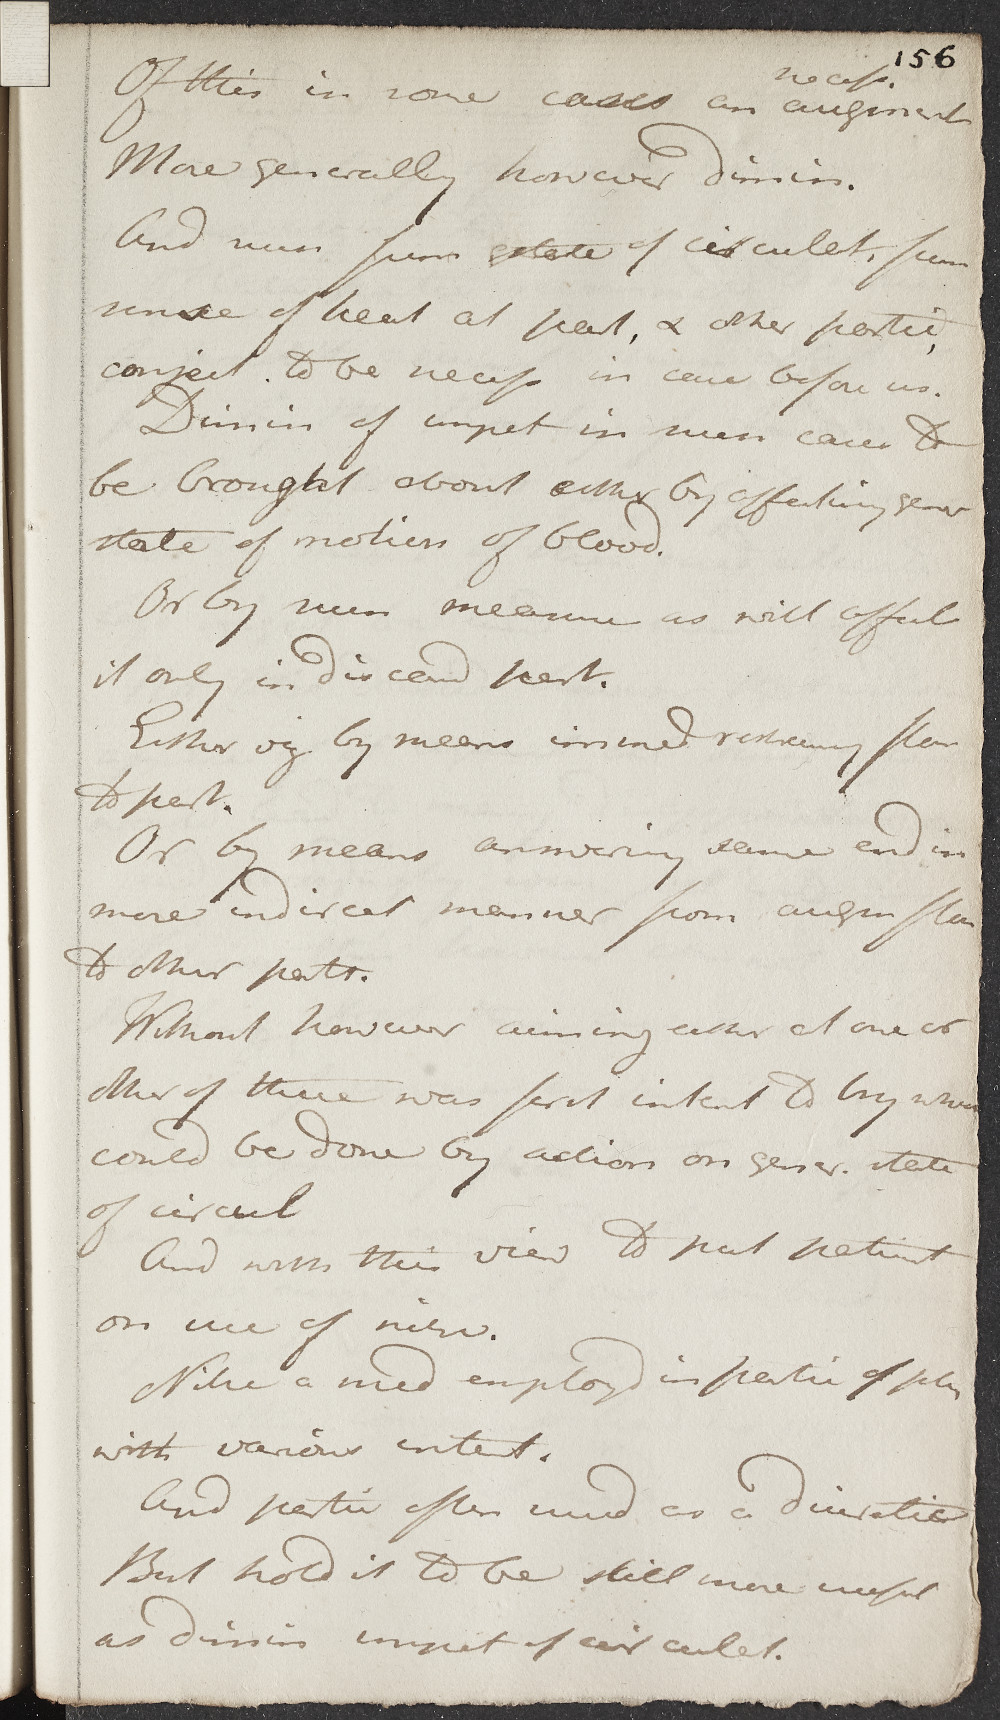 156
necess.
Of this in some cases an augment
More generally however dimin.
And now from state of circulat, from
sense of heat at part, & other partic,
conject. to be necess in case before us.
Dimin of impet in such cases to
be brought about either by affecting gener
state of motion of blood.
Or by such measure as will affect
it only in diseasd part.
Either viz. by means immed restraing flow
to part.
Or by means answering same end in
more indirect manner from augm flow
to other parts.
Without however aiming either at one or
other of these was first intent to try what
could be done by action on gener. state
of circul
And with this view to put patient
on use of nitre.
Nitre a med employd in partic of
with various intent.
And partic often used as a diuretic
But hold it to be still more useful
as dimin impet of circulat.